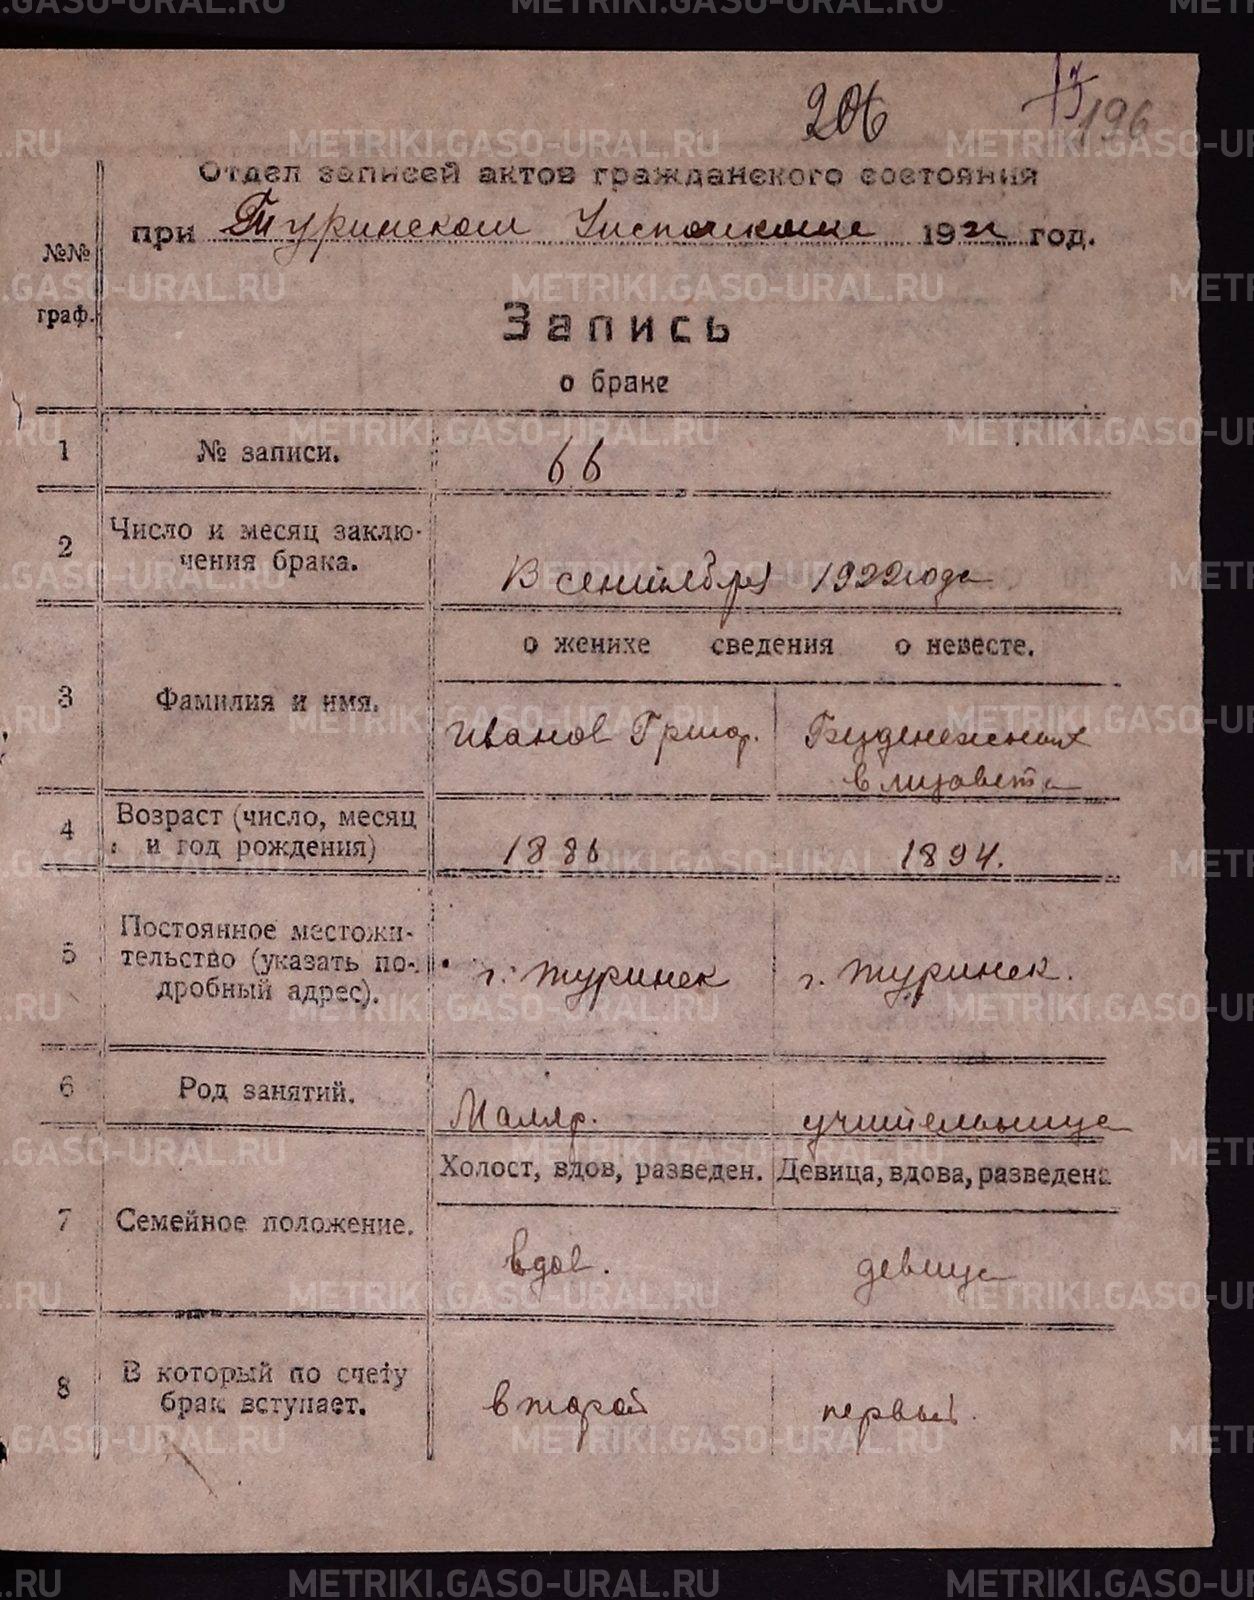 206
196
Отдел записей актов гражданского состояния
при Туринском Исполкоме 1922 год.
№№
граф.
Запись
о браке
1 № записи. 66
2 Число и месяц заклю-
чения брака.
сентября 1922 года
о женихе сведения о невесте.
3 Фамилия и имя.
Иванов Григор. Безденежных
Елизавета
4 Возраст (число, месяц
и год рождения)
1886 1894.
5 Постоянное местожи-
тельство (указать по-
дробный адрес).
г. Туринск г. Туринск.
6 Род занятий.
Маляр. учительница
Холост, вдов, разведен. Девица, вдова, разведена
7 Семейное положение.
вдов. девица
8 В который по счету
брак вступает.
второй первый.
METRIKI.GASO-URAL.RU